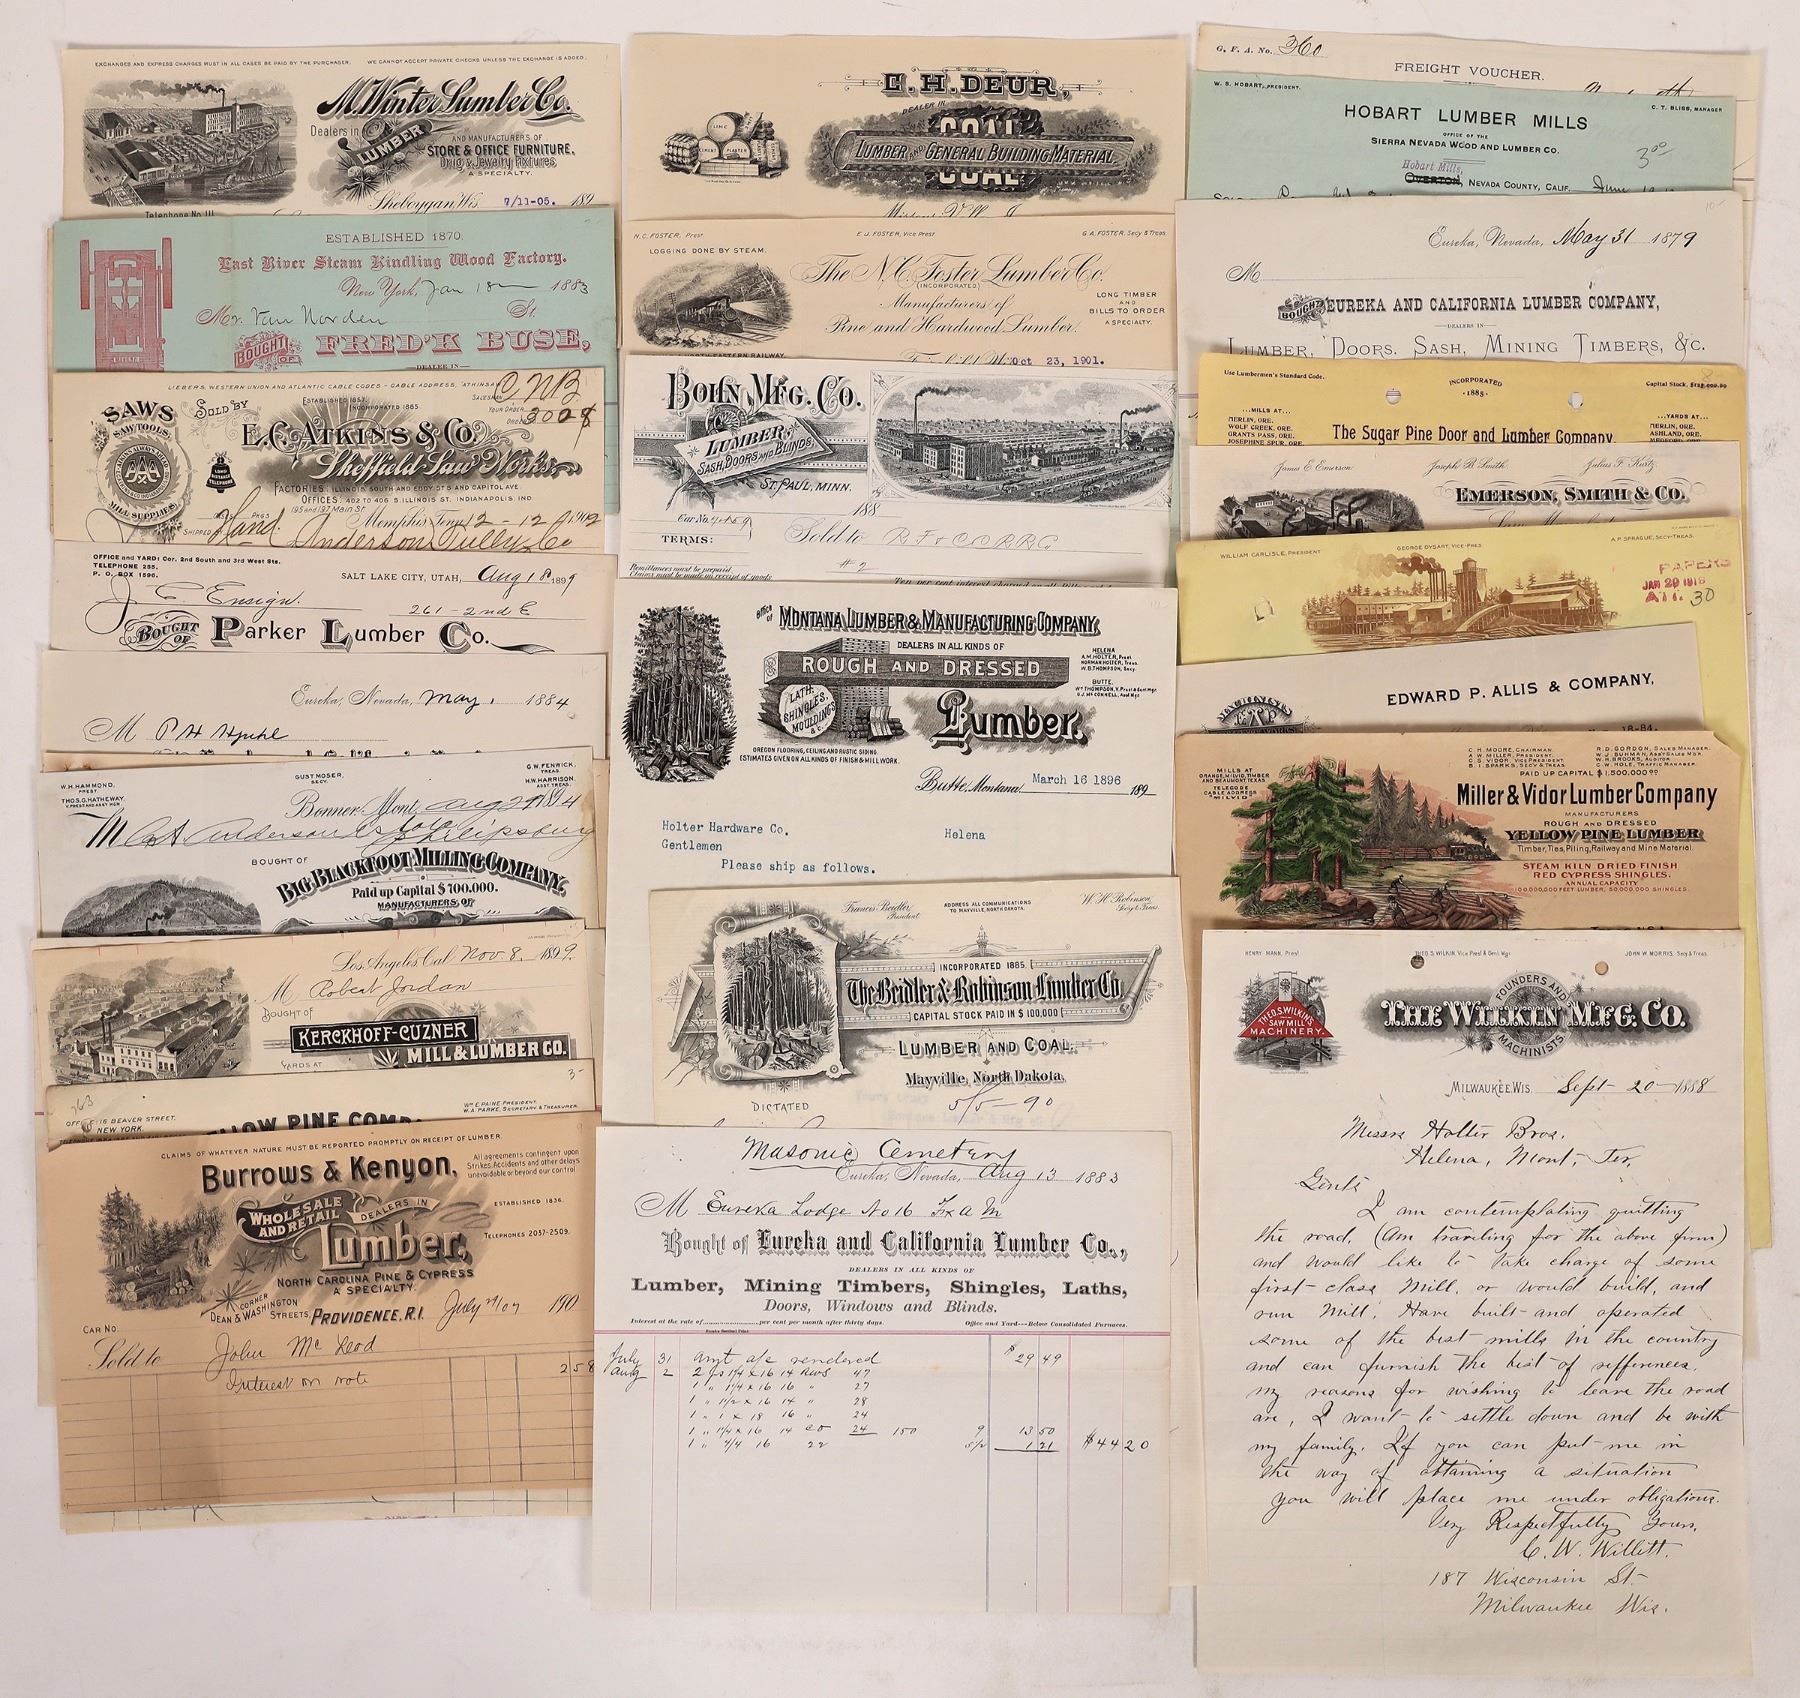 EXCHANGES AND EXPRESS CHARGES MUST IN ALL CASES BE PAID BY THE PURCHASER. WE CANNOT ACCEPT PRIVATE CHECKS UNLESS THE EXCHANGE IS ADDED.
M. Winter Lumber Co.
Dealers in LUMBER AND MANUFACTURERS OF
STORE & OFFICE FURNITURE,
Drug & Jewelry Fixtures
A SPECIALTY.
Sheboygan, Wis. 7/11-05. 189
Telephone No. 111
ESTABLISHED 1870.
East River Steam Kindling Wood Factory.
New York, Jan 18 1883
Mr. Van Norden St.
BOUGHT OF FRED'K BUSE,
DEALER IN
LIEBERS, WESTERN UNION AND ATLANTIC CABLE CODES - CABLE ADDRESS, "ATKINS"
SALESMAN C N B.
ESTABLISHED 1857.
INCORPORATED 1885.
YOUR ORDER
SAWS
SAW TOOLS,
MILL SUPPLIES.
SOLD BY
E. C. ATKINS & CO.
Sheffield Saw Works
LONG DISTANCE TELEPHONE
FACTORIES: ILLINOIS, SOUTH AND EDDY STS AND CAPITOL AVE
OFFICES: 402 TO 406 S. ILLINOIS ST. INDIANAPOLIS, IND
195 and 197 Main St.
Memphis, Tenn 12-12 1902
SHIPPED Hand.
Anderson Tully Co
OFFICE and YARD: Cor. 2nd South and 3rd West Sts.
TELEPHONE 255.
P. O. BOX 1596.
SALT LAKE CITY, UTAH, Aug 18 1899
J C Ensign.
261-2nd E
BOUGHT OF Parker Lumber Co.
Eureka, Nevada, May, 1884
M P H Hjuhl
W. H. HAMMOND, PREST.
THOS. G. HATHEWAY, V. PREST. AND ASST. MGR.
GUST MOSER, SECY.
G. W. FENWICK, TREAS.
H. W. HARRISON, ASST. TREAS.
Bonner, Mont. Aug 29 1894
M A Anderson Estate Philipsburg
BOUGHT OF
BIG BLACKFOOT MILLING COMPANY,
Paid up Capital $700,000.
MANUFACTURERS OF
Los Angeles, Cal. Nov 8, 1899.
M Robert Jordan
BOUGHT OF
KERCKHOFF-CUZNER
MILL & LUMBER CO.
YARDS AT
763
3-
OFFICE: 16 BEAVER STREET,
NEW YORK.
WM E. PAINE, PRESIDENT.
W. A. PARKE, SECRETARY & TREASURER.
YELLOW PINE COMP
CLAIMS OF WHATEVER NATURE MUST BE REPORTED PROMPTLY ON RECEIPT OF LUMBER.
Burrows & Kenyon,
All agreements contingent upon
Strikes, Accidents and other delays
unavoidable or beyond our control
WHOLESALE AND RETAIL DEALERS IN
ESTABLISHED 1836.
Lumber,
TELEPHONES 2037-2509.
NORTH CAROLINA PINE & CYPRESS
A SPECIALTY.
CORNER
DEAN & WASHINGTON STREETS
PROVIDENCE, R.I. July 21/07 190
CAR NO
Sold to John McLeod
Interest on note 258
C. H. DEUR,
DEALER IN
COAL
LUMBER AND GENERAL BUILDING MATERIAL
COAL
LIME
CEMENT
PLASTER
N. C. FOSTER, Prest.
E. J. FOSTER, Vice Prest
G. A. FOSTER, Secy & Treas.
LOGGING DONE BY STEAM.
The N. C. Foster Lumber Co.
(INCORPORATED)
Manufacturers of
Pine and Hardwood Lumber.
LONG TIMBER
AND
BILLS TO ORDER
A SPECIALTY.
Oct 23, 1901.
BOHN MFG. CO.
LUMBER,
SASH, DOORS AND BLINDS,
ST. PAUL, MINN.
188
Car No.
TERMS:
Sold to R F & C C R R Co
#2
Remittances must be prepaid.
Claims must be made on receipt of goods
Ten per cent interest charged on all Bills
Office of
MONTANA LUMBER & MANUFACTURING COMPANY,
DEALERS IN ALL KINDS OF
ROUGH AND DRESSED
Lumber.
LATH, SHINGLES, MOULDINGS &c.
HELENA
A. M. HOLTER, Prest.
NORMAN HOLTER, Treas.
W. B. THOMPSON, Secy.
BUTTE.
WM THOMPSON, V. Prest & Genl Mgr.
O. J. McCONNELL, Asst Mgr
OREGON FLOORING, CEILING AND RUSTIC SIDING.
ESTIMATES GIVEN ON ALL KINDS OF FINISH & MILL WORK.
Butte, Montana, March 16 1896 189
Holter Hardware Co. Helena
Gentlemen
Please ship as follows.
Frances Beidler, President
ADDRESS ALL COMMUNICATIONS
TO MAYVILLE, NORTH DAKOTA.
W. H. Robinson, Secy & Treas.
INCORPORATED 1885.
The Beidler & Robinson Lumber Co.
CAPITAL STOCK PAID IN $100,000
LUMBER AND COAL,
Mayville, North Dakota,
DICTATED 5/5-90
Masonic Cemetery
Eureka, Nevada, Aug 13 1883
M Eureka Lodge No 16 F & A M
Bought of Eureka and California Lumber Co.,
DEALERS IN ALL KINDS OF
Lumber, Mining Timbers, Shingles, Laths,
Doors, Windows and Blinds.
Interest at the rate of per cent per month after thirty days. Office and Yard—Below Consolidated Furnaces.
Eureka Sentinel Print
July 31 Amt a/c rendered $29 49
Aug 2 2 ps 1/4 x 16 14 RWS 47
1 " 1/4 x 16 16 " 27
1 " 1/2 x 16 14 " 28
1 " 1 x 18 16 " 24
1 " 1/4 x 16 14 CO 24 150 9 13 50
1 " 3/4 16 22 5 1/2 1 21 $44 20
G. F. A. No. 360
FREIGHT VOUCHER.
W. S. HOBART, PRESIDENT.
C. T. BLISS, MANAGER
HOBART LUMBER MILLS
OFFICE OF THE
SIERRA NEVADA WOOD AND LUMBER CO.
Hobart Mills,
OVERTON, NEVADA COUNTY, CALIF. June
10-
Eureka, Nevada, May 31 1879
M
BOUGHT OF EUREKA AND CALIFORNIA LUMBER COMPANY,
DEALERS IN
LUMBER, DOORS, SASH, MINING TIMBERS, &C.
Use Lumbermen's Standard Code.
INCORPORATED
1885
Capital Stock,
...MILLS AT...
MERLIN, ORE.
WOLF CREEK, ORE.
GRANTS PASS, ORE.
JOSEPHINE SPUR, ORE.
...YARDS AT...
MERLIN, ORE.
ASHLAND, ORE.
MEDFORD, ORE.
The Sugar Pine Door and Lumber Company.
James E. Emerson.
Joseph B. Smith.
Julius F. Kurtz.
EMERSON, SMITH & CO.
WILLIAM CARLISLE, PRESIDENT
GEORGE DYSART, VICE-PRES.
A. P. SPRAGUE, SECY-TREAS.
PAPERS
JAN 29 1916
ATT. 30
EDWARD P. ALLIS & COMPANY,
MACHINISTS
18-84.
C. H. MOORE, CHAIRMAN.
A. W. MILLER, PRESIDENT.
C. S. VIDOR, VICE PRESIDENT.
B. I. SPARKS, SECY & TREAS.
R. D. GORDON, SALES MANAGER.
W. J. BUHMAN, ASST SALES MGR.
W. H. BROOKS, AUDITOR
C. W. HOLE, TRAFFIC MANAGER.
PAID UP CAPITAL $1,500,000.00
MILLS AT
ORANGE, MILVID, TIMBER
AND BEAUMONT, TEXAS
TELECODE
CABLE ADDRESS
"MILVID"
Miller & Vidor Lumber Company
MANUFACTURERS
ROUGH AND DRESSED
YELLOW PINE LUMBER
Timber, Ties, Piling, Railway and Mine Material.
STEAM KILN DRIED FINISH
RED CYPRESS SHINGLES.
ANNUAL CAPACITY
100,000,000 FEET LUMBER, 50,000,000 SHINGLES.
HENRY MANN, Prest
THEO S. WILKIN, Vice Prest & Genl Mgr.
JOHN W. MORRIS, Secy & Treas.
THEO. S. WILKIN'S
SAW MILL
MACHINERY.
THE WILKIN MFG. CO.
FOUNDERS AND MACHINISTS.
MILWAUKEE, WIS. Sept-20-1888
Messrs Holter Bros.
Helena, Mont, Ter,
Gents
I am contemplating quitting
the road, (Am traveling for the above firm)
and would like to take charge of some
first-class Mill, or would build, and
run Mill. Have built and operated
some of the best mills in the country
and can furnish the best of refferences.
my reasons for wishing to leave the road
are, I want to settle down and be with
my family. If you can put me in
the way of attaining a situation
you will place me under obligations.
Very Respectfully Yours,
C. W. Willett.
187 Wisconsin St-
Milwaukee Wis.